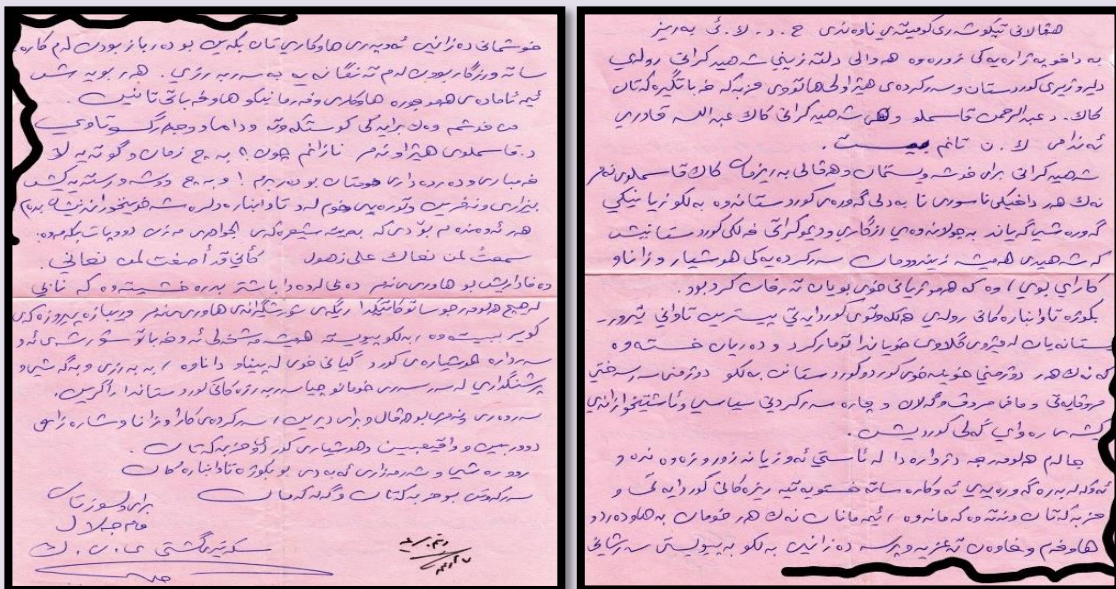 هەڤاڵانی تێکۆشەری کومیتەی ناوەندی ح . د . ک . ئی بەرێز
بە داخ و پەژارەیەکی زۆرەوە هەواڵی دڵتەزێنی شەهید کرانی رۆڵەی
دلێر و ژیری کوردستان و سەرکردەی هێژا و لێهاتووی حزبەکە خەباتگێرەکەتان
کاک . د . عبدالرحمن قاسملو و شەهید کرانی کاک عبداللە قادری
ئەندامی ک . ن تانم بیست .
شەهید کرانی برای خۆشەویستمان و هەڤاڵی بەرێزمان کاک قاسملوی نەمر
نەک هەر داخێکی ناسۆری نا بە دلی گەورەی کوردستانەوە بەلکو زیانێکی
گەورەشی گەیاند بە جولانەوەی رزگاری و دیموکراتی خەلکی کوردستانیش
کە شەهیدی هەمیشە زیندومان سەرکردەیەکی هوشیار و زانا و
کارای بوی ، وە کە هەمو ژیانی خۆی بۆیان تەرخان کردبو .
بکوژە تاوانبارەکانی رۆڵەی هەلکەوتوی کوردایەتی پیسترین تاوانی تیرۆر
یستانەیان لە مێژوی گلاوی خۆیاندا تۆمار کرد و دەریان خستەوە
کە نەک هەر دوژمنی خوێنەخۆی کورد و کوردستانن بەلکو دوژمنی سەرسەختی
مرۆڤایەتی و مافی مرۆڤ و گەلان و چارە سەرکردنی سیاسی و ئاشتیخوازانەی
کێشەی رەوای گەلی کوردیشن .
جا لەم هەلومەرجە دژوارەدا لە ئاستی ئەو زیانە زۆر و زەوەندە و
ئەو لە بەرە گەورەیەی ئەو کارەساتە خستویەتیە ریزەکانی کوردایەتی و
حزبەکەتان و نەتەوەکەمانەوە ، ئێمەمانان نەک هەر خۆمان بە هاودەرد و
هاوخەم و خاوەن تەعزیە و پرسە دەزانین بەلکو بە پێویستی سەرشانی
خۆشمانی دەزانین ئەوپەری هاوکاریتان بکەین بۆ دەرباز بوون لەم کارە
ساتە و رزگار بوون لەم تەنگانەیە بە سەربەرزی . هەر بۆیە ش
ئێمە ئامادەی هەموو جۆرە هاوکاری و فەرمانێکو هاوخەباتی تانین .
من خۆشم وەک برایەکی کۆست کەوتە و داماو و جەرگ سوتاوی
د . قاسملوی هێژا و نەمر نازانم چون ؟ بە چ زمان و گوتەیە لا
خەمباری و دەردەداری خۆمتان بۆ دەربرم ! و بە چ وشە و رستەیەکیش
بێزاری و نەفرین و تورەیی خۆم لەو تاوانبارە دلرەشە خوێنخوارانە نیشە بدەم
هەر ئەوەندەم بۆ دێ کە بەیتە شیعرەکەی الجواهری مەزن دووپات بکەمەوە :
سمعتُ لمن نعاك على ذهول كأني قد أصغت لمن نعاني .
وەفاداریش بۆ هاورێی نەمر دەبێ لەوەدا باشتر بدرەخشێتەوە کە نابێ
لە هیچ هەلومەرجو ساتو کاتێکدا رێگەی شۆرشگێرانەی هاورێی نەمر و رێبازە پیرۆزەکەی
کوێر ببێتەوە ، بەلکو پێویستە هەمیشە مەشخەلی ئەو خەباتو شۆرشەی ئەو
سەردارە هوشیارەی کورد گیانی خۆی لە پێناو داناوە ، بە بەرزی و بەگەشی و
پرشنگداری لە سەر سەری خۆمانو چیا سەربەرزەکانی کوردستاندا راگرین .
سەروەری و نەمری بۆ هەڤال و برای دێرین ، سەرکردەی کارا و زانا و شارەزای
دووربین و واقیعبین و هوشیاری کورد و حزبەکەتان
روورەشی و شەرمەزاری ئەبەدی بۆ بکوژە تاوانبارەکان
سەرکەوتن بۆ حزبەکەتان و گەلەکەمان
برای دلسۆزتان
مام جلال
سکرتێری گشتی ی . ن . ک